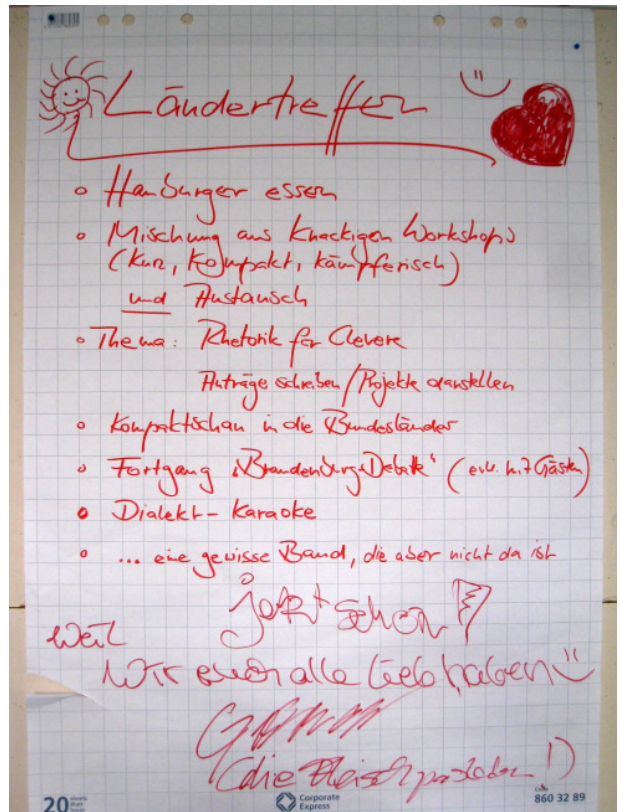 Ländertreffen
Hamburger essen
Mischung aus Knackigen Workshops
(Kurz, Kompakt, kämpferisch)
und Austausch
Thema: Rhetorik für Clevere
Anträge schreiben / Projekte darstellen
Kompaktschau in die Bundesländer
Fortgang „Brandenburg-Debatte“ (evtl. mit Gästen)
Dialekt-Karaoke
... eine gewisse Band, die aber nicht da ist
jetzt schon
Weil
Wir euch alle lieb haben
(die !)
20
Corporate Express
860 32 89